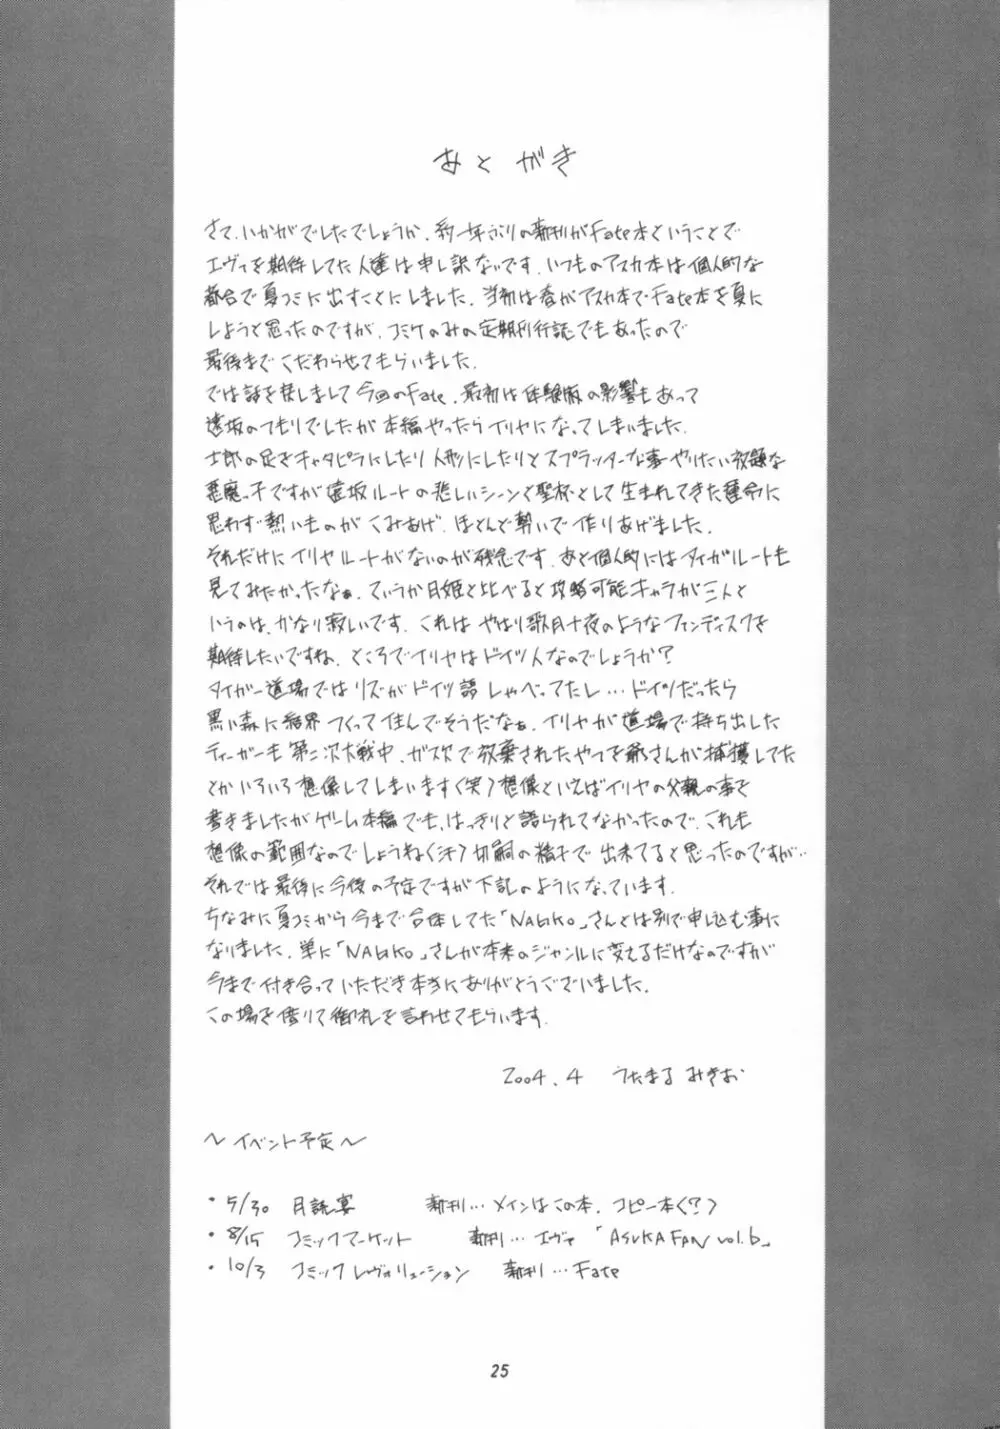 あとがき
さて、いかがでしたでしょうか、約一年ぶりの新刊がFate本ということで
エヴァを期待してた人達は申し訳ないです。いつものアスカ本は個人的な
都合で夏コミに出すことにしました。当初は春がアスカ本でFate本を夏に
しようと思ったのですが、コミケのみの定期刊行誌でもあったので
最後までこだわらせてもらいました。
では話を戻しまして今回のFate、最初は体験版の影響もあって
遠坂のつもりでしたが本編やったらイリヤになってしまいました。
士郎の足をキャタピラにしたり人形にしたりとスプラッターな事やりたい放題な
悪魔っ子ですが遠坂ルートの悲しいシーンで聖杯として生まれてきた運命に
思わず熱いものがこみあげ、ほとんど勢いで作りあげました。
それだけにイリヤルートがないのが残念です。あと個人的にはタイガルートも
見てみたかったなぁ。ていうか月姫と比べると攻略可能キャラが三人と
いうのは、かなり寂しいです。これはやはり歌月十夜のようなファンディスクを
期待したいですね。ところでイリヤはドイツ人なのでしょうか？
タイガー道場ではリズがドイツ語しゃべってたし…ドイツだったら
黒い森に結界つくって住んでそうだなぁ。イリヤが道場で持ち出した
ティーガーも第二次大戦中、ガス欠で放棄されたやつを爺さんが捕獲してた
とかいろいろ想像してしまいます(笑)想像といえばイリヤの父親の事で
書きましたがゲーム本編でも、はっきりと語られてなかったので、これも
想像の範囲なのでしょうね(汗)切嗣の精子で出来てると思ったのですが…
それでは最後に今後の予定ですが下記のようになっています。
ちなみに夏コミから今まで合体してた「NAGIKO」さんとは別で申し込む事に
なりました。単に「NAGIKO」さんが本来のジャンルに変えるだけなのですが
今まで付き合っていただき本当にありがとうございました。
この場を借りて御礼を言わせてもらいます。
2004.4 うたまる みきお
～イベント予定～
・5/30 月読宴 新刊…メインはこの本、コピー本(?)
・8/15 コミックマーケット 新刊…エヴァ「ASUKA FAN vol.6」
・10/3 コミックレヴォリューション 新刊…Fate
25